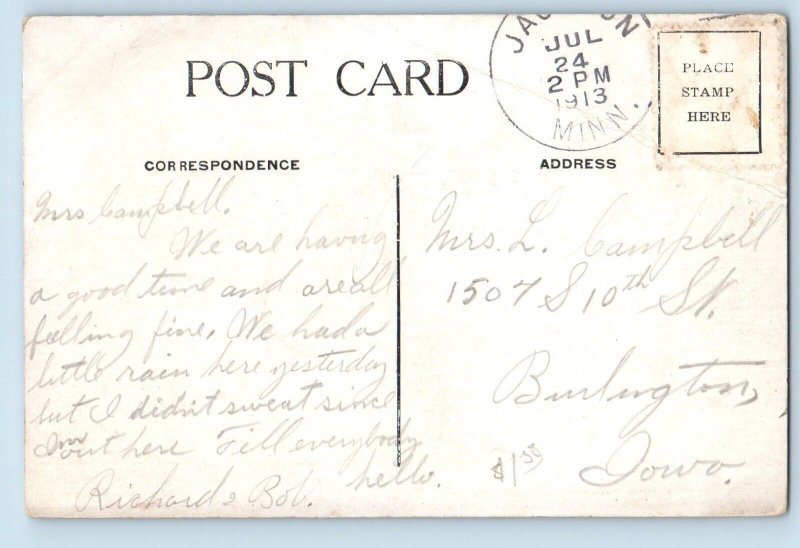 POST CARD
JACKSON
JUL
24
2 PM
1913
MINN.
PLACE
STAMP
HERE
CORRESPONDENCE
ADDRESS
Mrs Campbell.
We are having
a good time and are all
feelling fine. We had a
little rain here yesterday
but I didn't sweat since
I'm out here Tell everybody
hello.
Richard & Bob.
Mrs. L. Campbell
1507 S 10th St.
Burlington,
Iowa.
$1.50